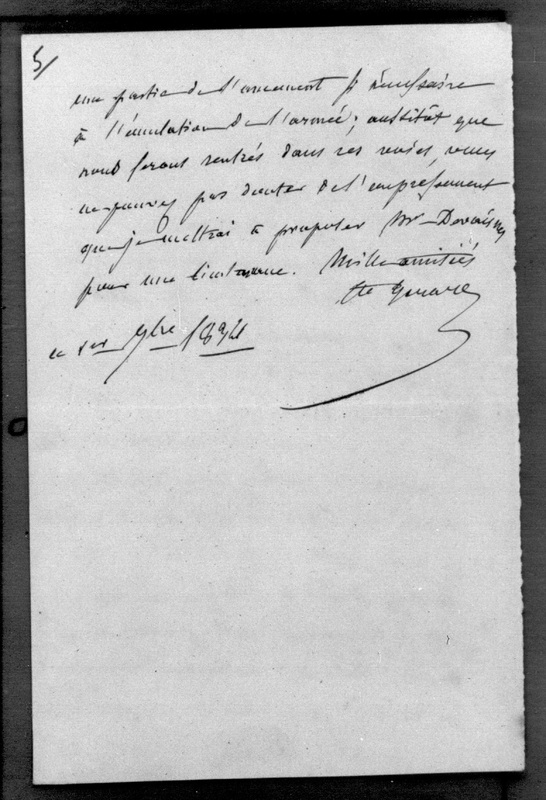 5/
une partie de l'avancement si nécessaire
à l'émulation de l'armée; aussitôt que
nous serons rentrés dans ses voies, vous
ne pouvez pas douter de l'empressement
que je mettrai à proposer Mr
pour une lieutenance. Mille amitiés
Cte Gérard
ce 1er 9bre 1834